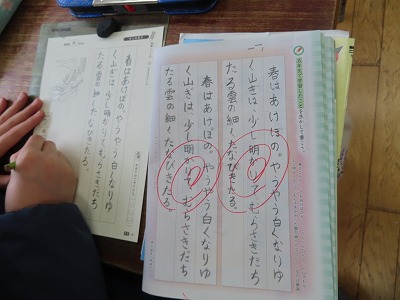 学習したことを生かして書こう。
春はあけぼの。やうやう白くなりゆ
く山ぎは、少し明かりてむらさきだち
たる雲の細くたなびきたる。
春はあけぼの。やうやう白くなりゆ
く山ぎは、少し明かりてむらさきだち
たる雲の細くたなびきたる。
春はあけぼの。やうやう白くなりゆ
く山ぎは、少し明かりてむらさきだち
たる雲の細くたなびきたる。